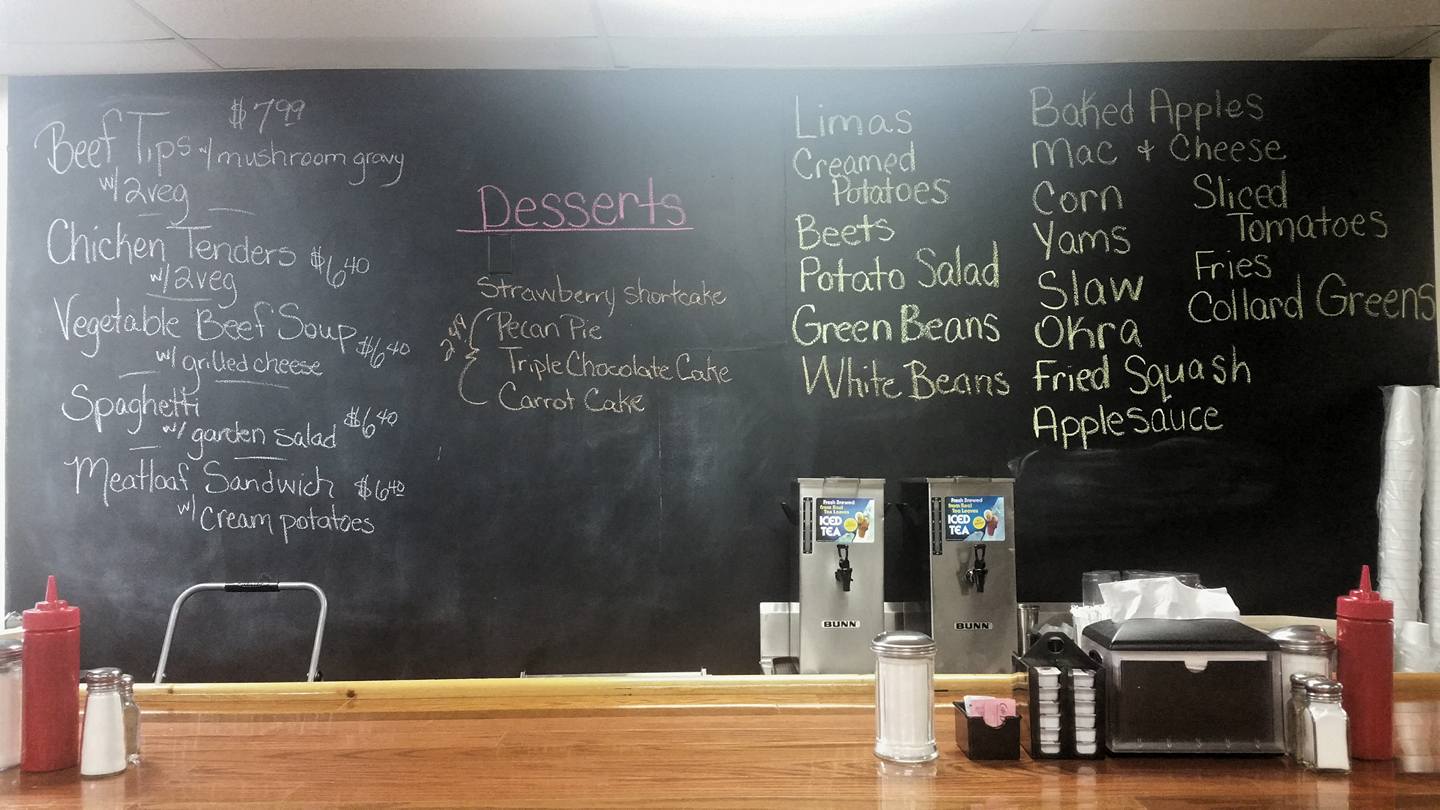 $7.99
Beef Tips w/ mushroom gravy
w/ 2 veg
Chicken Tenders $6.40
w/ 2 veg
Vegetable Beef Soup $6.40
w/ grilled cheese
Spaghetti
w/ garden salad $6.40
Meatloaf Sandwich $6.40
w/ Cream potatoes
Desserts
Strawberry shortcake
2.49
Pecan Pie
Triple Chocolate Cake
Carrot Cake
Limas
Creamed
Potatoes
Beets
Potato Salad
Green Beans
White Beans
Baked Apples
Mac & Cheese
Corn
Yams
Slaw
Okra
Fried Squash
Applesauce
Sliced
Tomatoes
Fries
Collard Greens
Fresh Brewed
from Real
Tea Leaves
ICED
TEA
BUNN
Fresh Brewed
from Real
Tea Leaves
ICED
TEA
BUNN